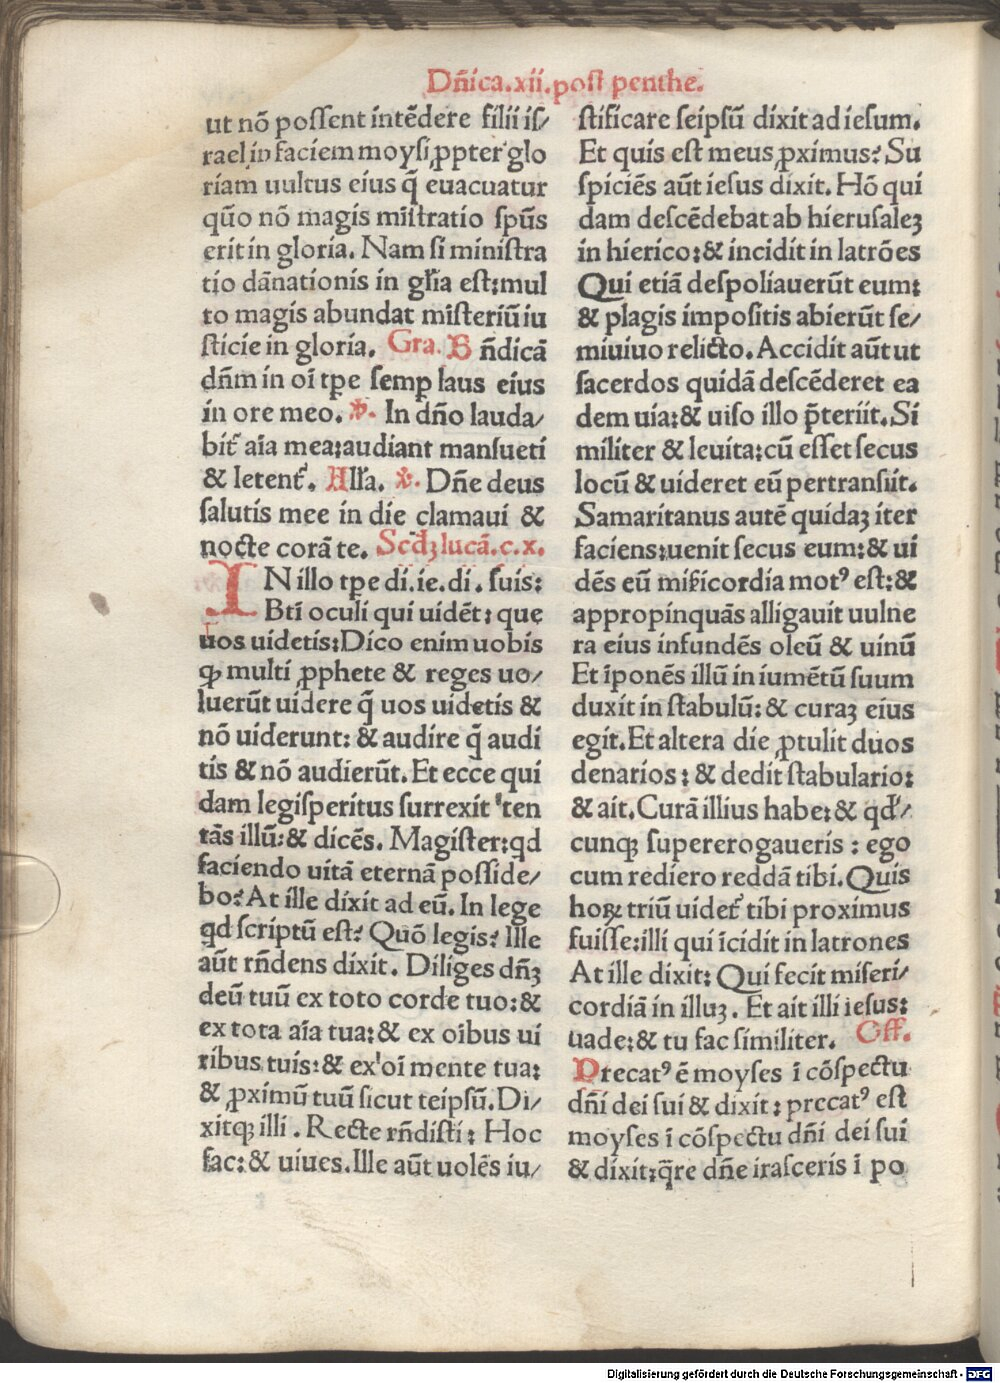 Dñica.xii.post penthe.
ut nõ possent intẽdere filii is/
rael in faciem moysi ꝓpter glo
riam uultus eius q̃ euacuatur
qũo nõ magis mĩstratio spũs
erit in gloria. Nam si ministra
tio dãnationis in gl'ia est:mul
to magis abundat misteriũ iu
sticie in gloria. Gra. B ñdicã
dñm in oĩ tpe semp laus eius
in ore meo. ℣. In dño lauda/
bit᷑ aĩa mea:audiant mansueti
& letent᷑. All'a. ℣. Dñe deus
salutis mee in die clamaui &
nocte corã te. Scd̃ꝫ lucã.c.x.
IN illo tpe di.ie.di. suis:
Btĩ oculi qui uidẽt: que
uos uidetis:Dico enim uobis
ꝙ multi ꝓphete & reges uo/
luerũt uidere q̃ uos uidetis &
nõ uiderunt: & audire q̃ audi
tis & nõ audierũt. Et ecce qui
dam legisperitus surrexit ten
tãs illũ:& dicẽs. Magister:qd
faciendo uitã eternã posside/
bo? At ille dixit ad eũ. In lege
qd scriptũ est? Quõ legis? Ille
aũt rñdens dixit. Diliges dñꝫ
deũ tuũ ex toto corde tuo:&
ex tota aĩa tua:& ex oĩbus ui
ribus tuis:& ex oĩ mente tua:
& ꝓximũ tuũ sicut teipsũ. Di/
xitqꝫ illi . Recte rñdisti: Hoc
fac:& uiues. Ille aũt uolẽs iu/
stificare seipsũ dixit ad iesum.
Et quis est meus ꝓximus? Su
spiciẽs aũt iesus dixit. Hõ qui
dam descẽdebat ab hierusaleꝫ
in hierico:& incidit in latrões
Qui etiã despoliauerũt eum:
& plagis impositis abierũt se/
miuiuo relicto. Accidit aũt ut
sacerdos quidã descẽderet ea
dem uia:& uiso illo p̃teriit. Si
militer & leuita:cũ esset secus
locũ & uideret eũ pertransiit.
Samaritanus autẽ quidaꝫ iter
faciens:uenit secus eum:& ui
dẽs eũ mĩsicordia motꝰ est:&
appropinquãs alligauit uulne
ra eius infundẽs oleũ & uinũ
Et ĩponẽs illũ in iumẽtũ suum
duxit in stabulũ:& curaꝫ eius
egit. Et altera die ꝓtulit duos
denarios: & dedit stabulario:
& ait. Curã illius habe:& qd'/
cunqꝫ supererogaueris : ego
cum rediero reddã tibi. Quis
hoꝝ triũ uidet᷑ tibi proximus
fuisse:illi qui ĩcidit in latrones
At ille dixit: Qui fecit miseri/
cordiã in illuꝫ. Et ait illi iesus:
uade:& tu fac similiter. Off.
Precatꝰ ẽ moyses ĩ cõspectu
dñi dei sui & dixit: precatꝰ est
moyses ĩ cõspectu dñi dei sui
& dixit:q̃re dñe irasceris ĩ po
Digitalisierung gefördert durch die Deutsche Forschungsgemeinschaft - DFG